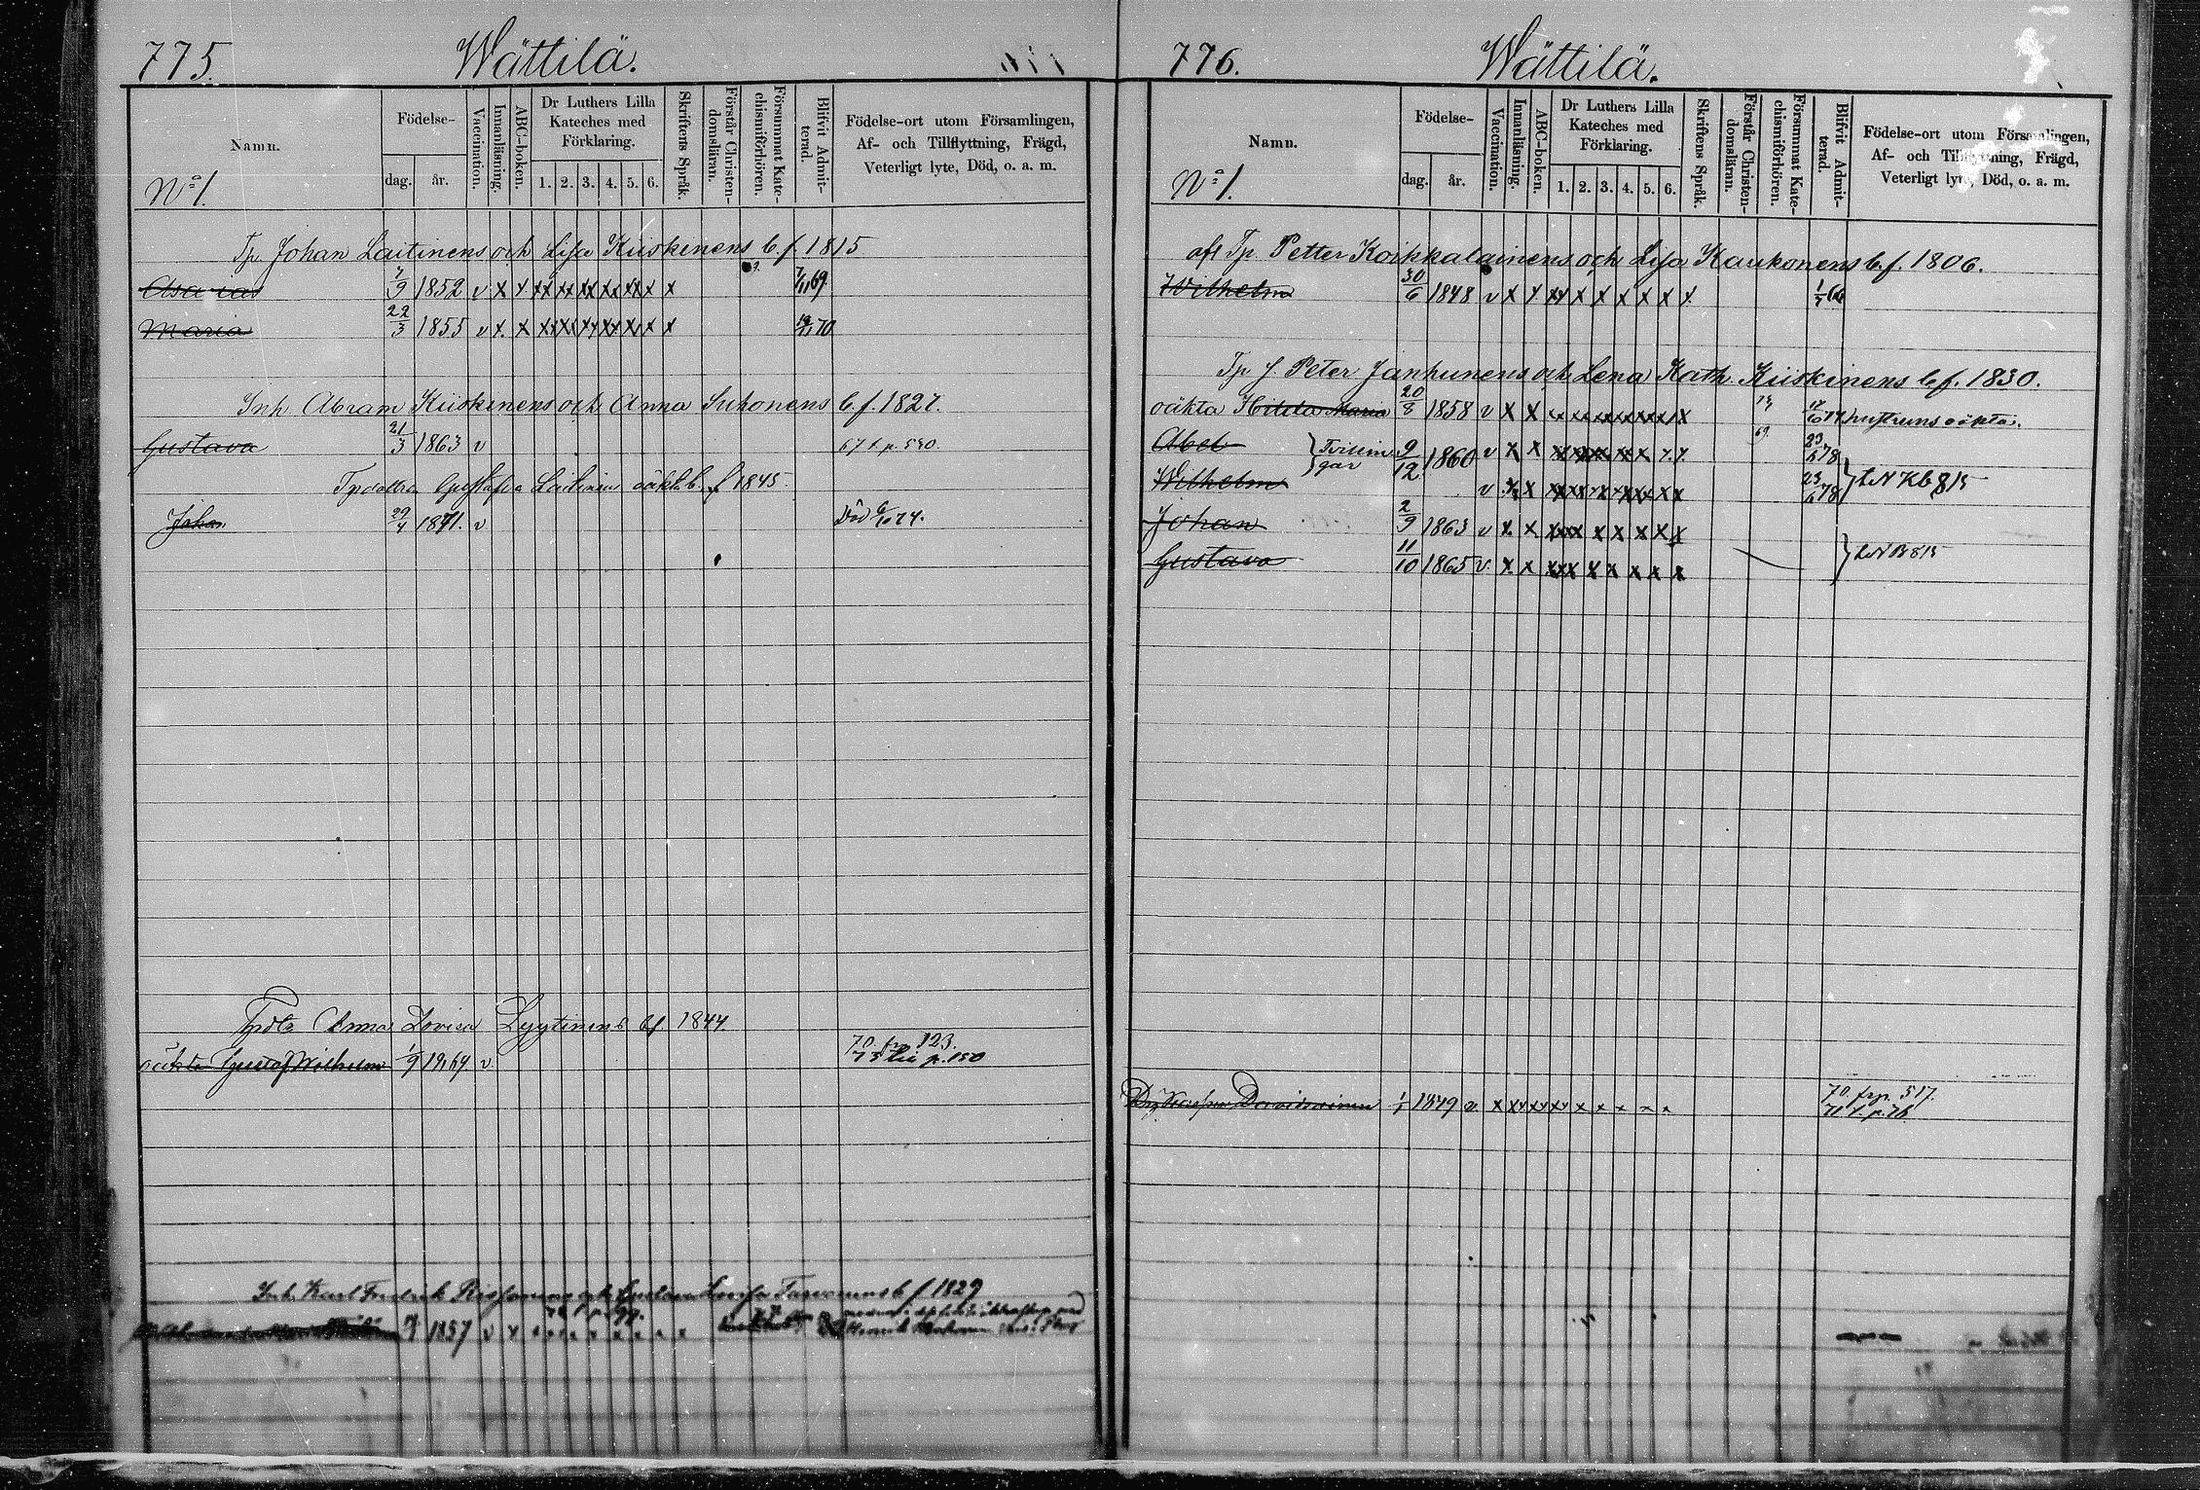 775. Wättilä.
Namn. Födelse- dag. år. Vaccination. Innanläsning. ABC-boken. Dr Luthers Lilla Kateches med Förklaring. 1. 2. 3. 4. 5. 6. Skriftens Språk. Förstår Christendomsläran. Försummat Katechismiförhören. Blifvit Admitterad. Födelse-ort utom Församlingen, Af- och Tillflyttning, Frägd, Veterligt lyte, Död, o. a. m.
No 1.
Tp Johan Laitinens och Lisa Kiiskinens b. f. 1815
7/9 1852 v x x xx xx xx xx xx x x 7/11 69
Maria 22/3 1855 v x x xx xx xx xx xx x x 70
Inh. Abram Kiiskinens och Anna Suhonens b. f. 1827.
Gustava 21/3 1863 v 67 t. p. 530.
Gustafva Laitinens oäkta b. f 1845
Johan 29/4 1871. v Död 74.
Anna Lovisa Lyytinens bf 1844
oäkta Gustaf Wilhelm 1/9 1869 v 70. fr. 123.
75 till p. 150
Inh. Karl Fredrik och Gustava Lovisa b f 1829
1857 v x x x x x x x x x
776. Wättilä.
Namn. Födelse- dag. år. Vaccination. Innanläsning. ABC-boken. Dr Luthers Lilla Kateches med Förklaring. 1. 2. 3. 4. 5. 6. Skriftens Språk. Förstår Christendomsläran. Försummat Katechismiförhören. Blifvit Admitterad. Födelse-ort utom Församlingen, Af- och Tillflyttning, Frägd, Veterligt lyte, Död, o. a. m.
No 1.
afl Tp. Petter Koikkalainens och Lisa Kaukonens b. f. 1806.
Wilhelm 30/6 1848 v x x xx x x x x x x
Tp J. Peter Janhunens och Lena Kath. Kiiskinens b. f. 1830.
oäkta Hilda Maria 20/8 1858 v x x x x x x x x x hustruns oäkta.
Abel } Tvillingar 9/12 1860 v x x xx xx xx x x x x 69. 23/6 78
Wilhelm v x x xx x x x x x x 23/6 78 } t. N Kb 815
Johan 2/9 1863 v x x xxx x x x x x
Gustava 11/10 1865 v. x x xxx x x x x x } t N B 815
1849 v x xx xx xx x x x x x 70. frp. 517.
71 t. p. 76.